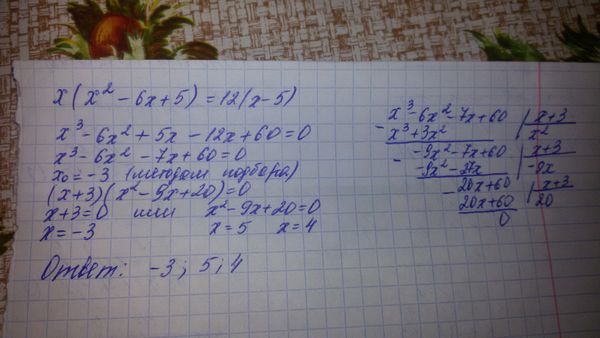 x(x² - 6x + 5) = 12(x - 5)
x³ - 6x² + 5x - 12x + 60 = 0
x³ - 6x² - 7x + 60 = 0
x₀ = -3 (методом подбора)
(x+3)(x² - 9x + 20) = 0
x+3 = 0 или x² - 9x + 20 = 0
x = -3 x = 5 x = 4
Ответ: -3; 5; 4
x³ - 6x² - 7x + 60 | x+3
- x³ + 3x² | x²
-9x² - 7x + 60 | x+3
- -9x² - 27x | -9x
20x + 60 | x+3
- 20x + 60 | 20
0